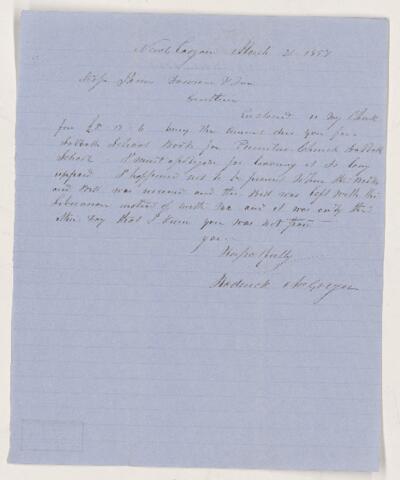 New Glasgow March 21 1857
Messrs James Dawson & Son
Gentlemen
Enclosed is my Check
for £5 17 6 being the amount due you for
Sabbath School Books for Primitive Church Sabbath
School I must apologize for leaving it so long
unpaid I happened not to be present when the Books
and Bill was received and the Bill was left with the
Librarian instead of with me and it was only the
other day that I knew you was not paid
you
Respectfully
Roderick McGregor